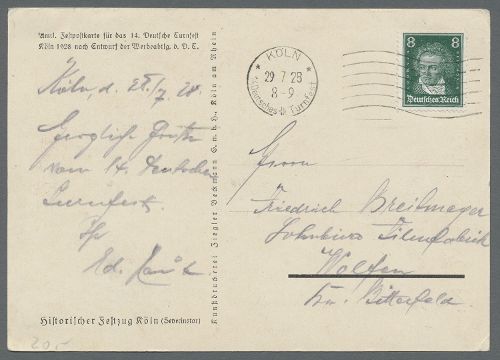 Amtl. Festpostkarte für das 14. Deutsche Turnfest
Köln 1928 nach Entwurf der Werbeabtlg. d. D. T.
Köln, d. 28./7. 28
Herzliche Grüße
vom 14. Deutschen
Turnfest.
Ihr
Ed.
Historischer Festzug Köln (Severinstor)
20,-
Kunstdruckerei Ziegler Beckmann G. m. b. H., Köln am Rhein
KÖLN
29 7 28
8-9
14. Deutsches Turnfest
8 8
Deutsches Reich
Herrn
Friedrich Breitmeyer
Filmfabrik
Wolfen
Kr. Bitterfeld.